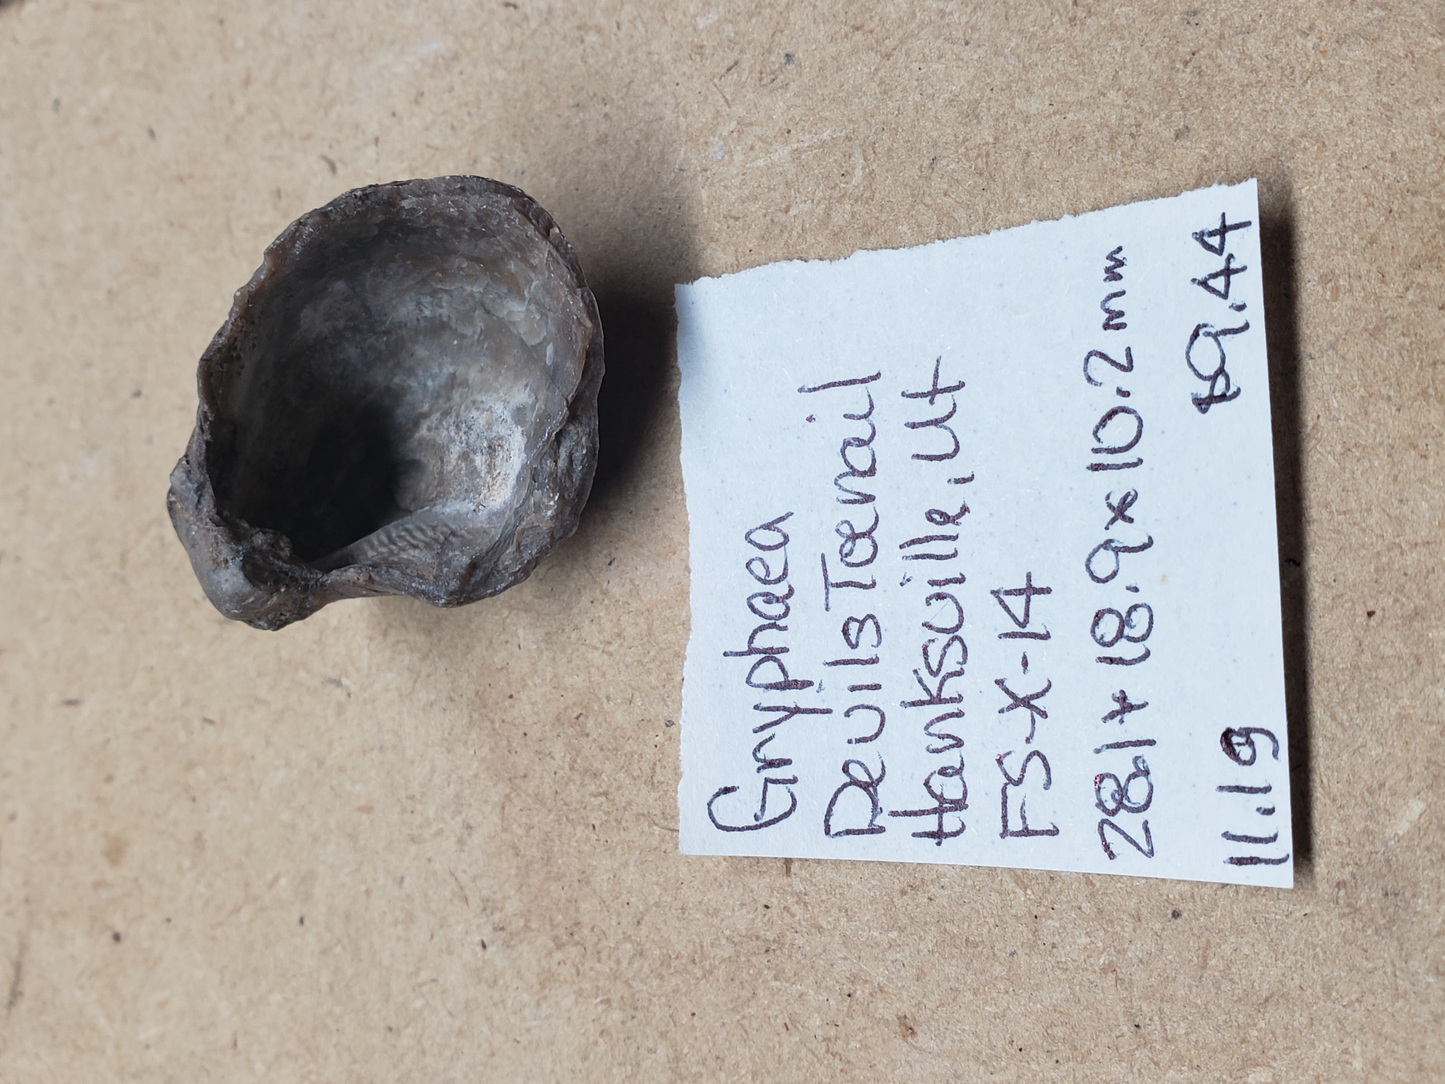 Gryphaea
Devils Toenail
Hanksville, Ut
FS-X-14
28.1 x 18.9 x 10.2 mm
11.1 g